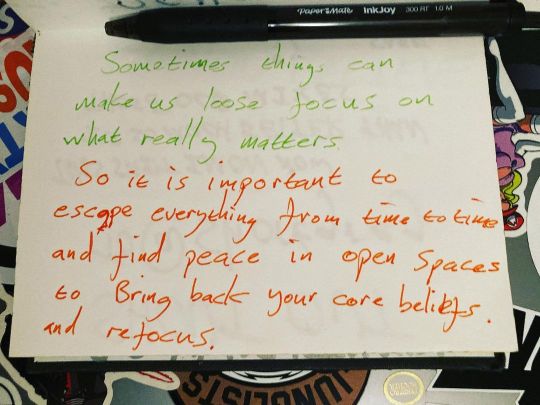 PaperMate InkJoy 300 RT 1.0 M
Sometimes things can
make us loose focus on
what really matters.
So it is important to
escape everything from time to time
and find peace in open spaces
to Bring back your core beliefs.
and refocus.
JUNGLISTS